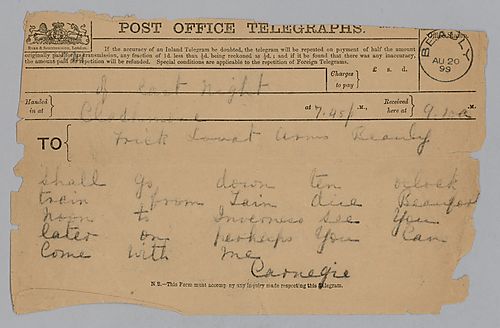 POST OFFICE TELEGRAPHS.
If the accuracy of an Inland Telegram be doubted, the telegram will be repeated on payment of half the amount
originally paid for transmission, any fraction of 1d. less than ½d. being reckoned as ½d.; and if it be found that there was any inaccuracy,
the amount paid for repetition will be refunded. Special conditions are applicable to the repetition of Foreign Telegrams.
BEAULY
AU 20
98
Charges to pay
£ s. d.
night
Handed in at
at 7.45
Received here at 9.
TO
Frick Lovat Arms Beauly
Shall go down ten oclock
train from Tain due
noon to Inverness see you
later on perhaps you can
come with me
Carnegie
N.B.—This Form must accompany any inquiry made respecting this Telegram.